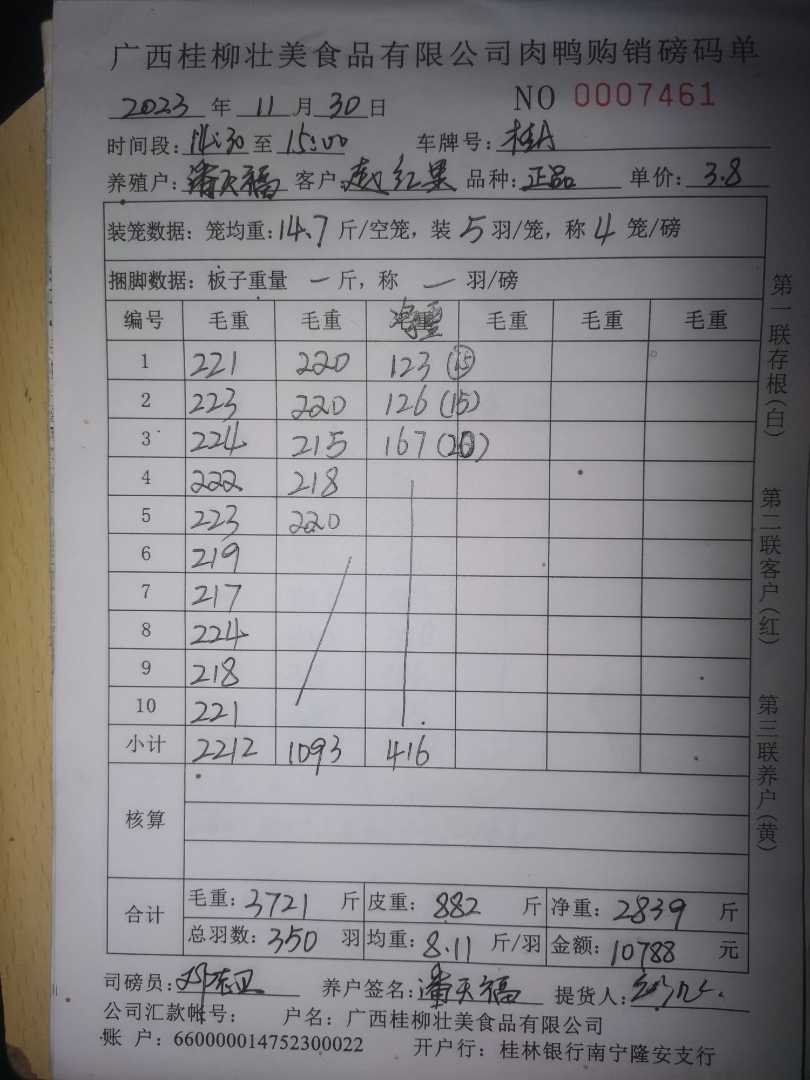 广西桂柳壮美食品有限公司肉鸭购销磅码单
2023 年 11 月 30 日 NO 0007461
时间段: 14:30 至 15:00 车牌号: 桂A
养殖户: 潘天福 客户: 赵红果 品种: 正品 单价: 3.8
装笼数据: 笼均重: 14.7 斤/空笼, 装 5 羽/笼, 称 4 笼/磅
捆脚数据: 板子重量 — 斤, 称 — 羽/磅
编号 毛重 毛重 毛重 毛重 毛重
1 221 220 123 (15)
2 223 220 126 (15)
3 224 215 167 (20)
4 222 218
5 223 220
6 219
7 217
8 224
9 218
10 221
小计 2212 1093 416
核算
合计 毛重: 3721 斤 皮重: 882 斤 净重: 2839 斤
总羽数: 350 羽 均重: 8.11 斤/羽 金额: 10788 元
司磅员: 养户签名: 潘天福 提货人:
公司汇款帐号: 户名: 广西桂柳壮美食品有限公司
账 户: 660000014752300022 开户行: 桂林银行南宁隆安支行
第一联存根(白)
第二联客户(红)
第三联养户(黄)